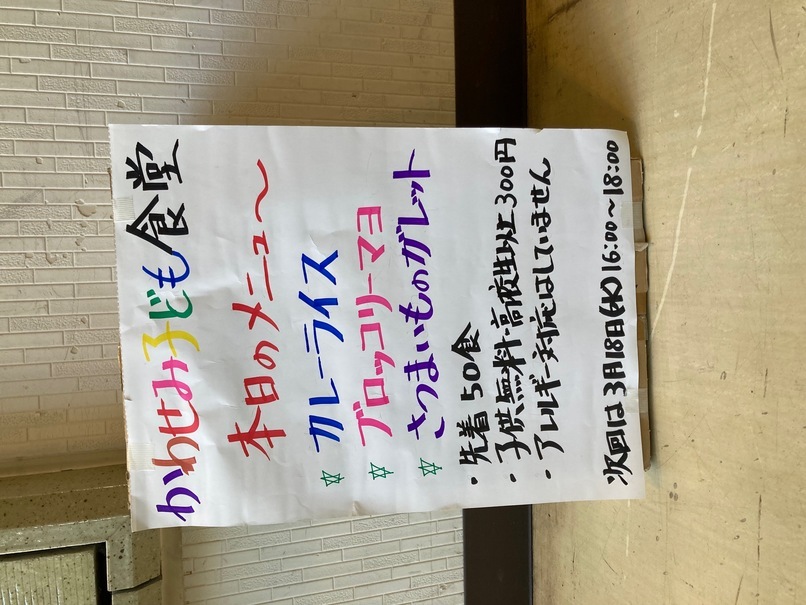 かわせみ子ども食堂
本日のメニュー〜
☆ カレーライス
☆ ブロッコリーマヨ
☆ さつまいものガレット
・先着50食
・子供無料 高校生以上300円
・アレルギー対応はしていません
次回は3月18日(水)16:00〜18:00